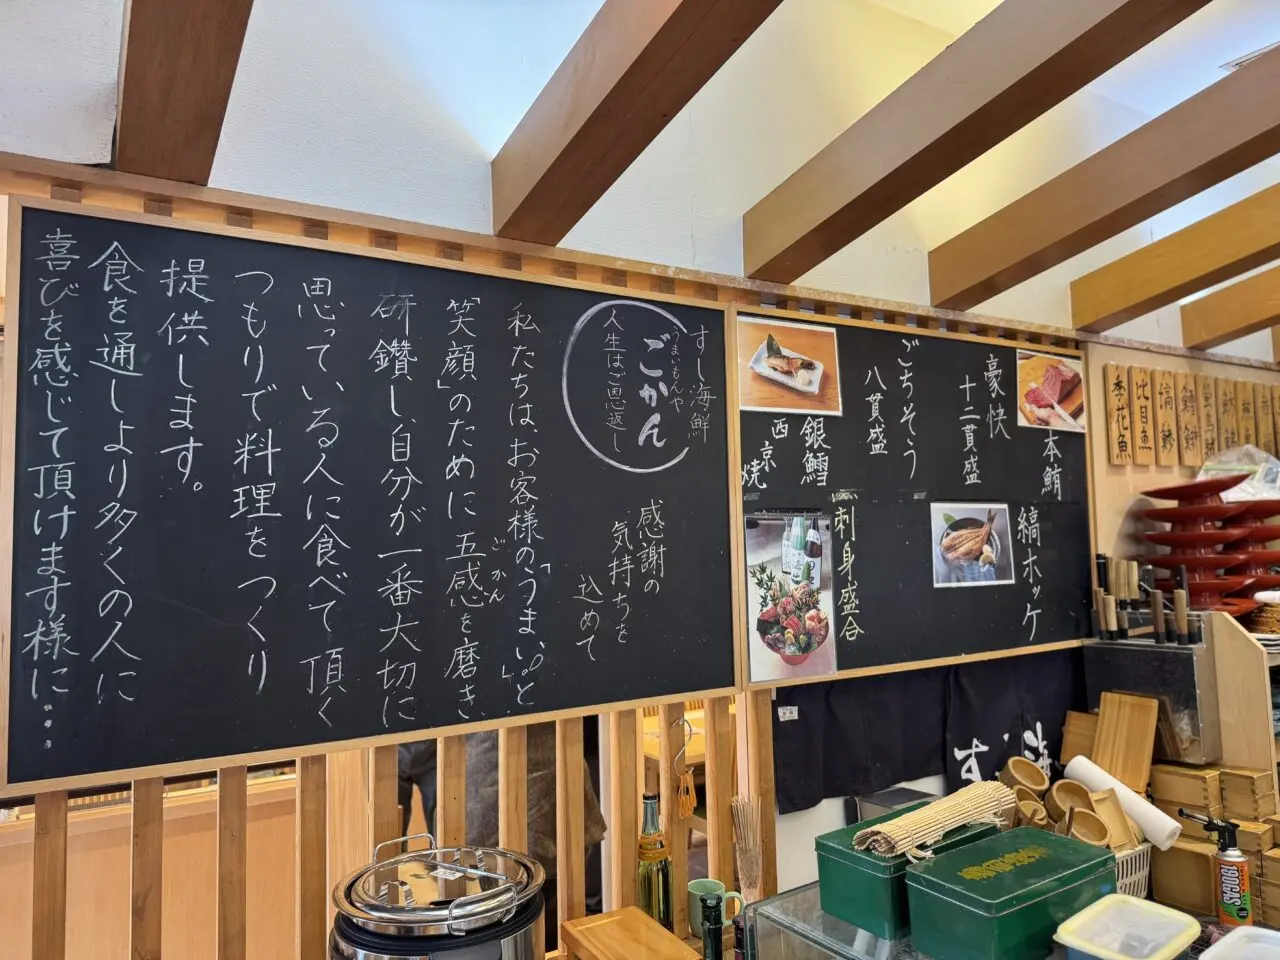 すし海鮮
うまいもんや
ごかん
人生はご恩返し
感謝の
気持ちを
込めて
私たちは、お客様の「うまい。」と
「笑顔」のために五感を磨き
ごかん
研鑽し、自分が一番大切に
思っている人に食べて頂く
つもりで料理をつくり
提供します。
食を通しより多くの人に
喜びを感じて頂けます様に…
本鮪
豪快
十二貫盛
ごちそう
八貫盛
銀鱈
西京焼
縞ホッケ
刺身盛合
比目魚
季花魚
すし海